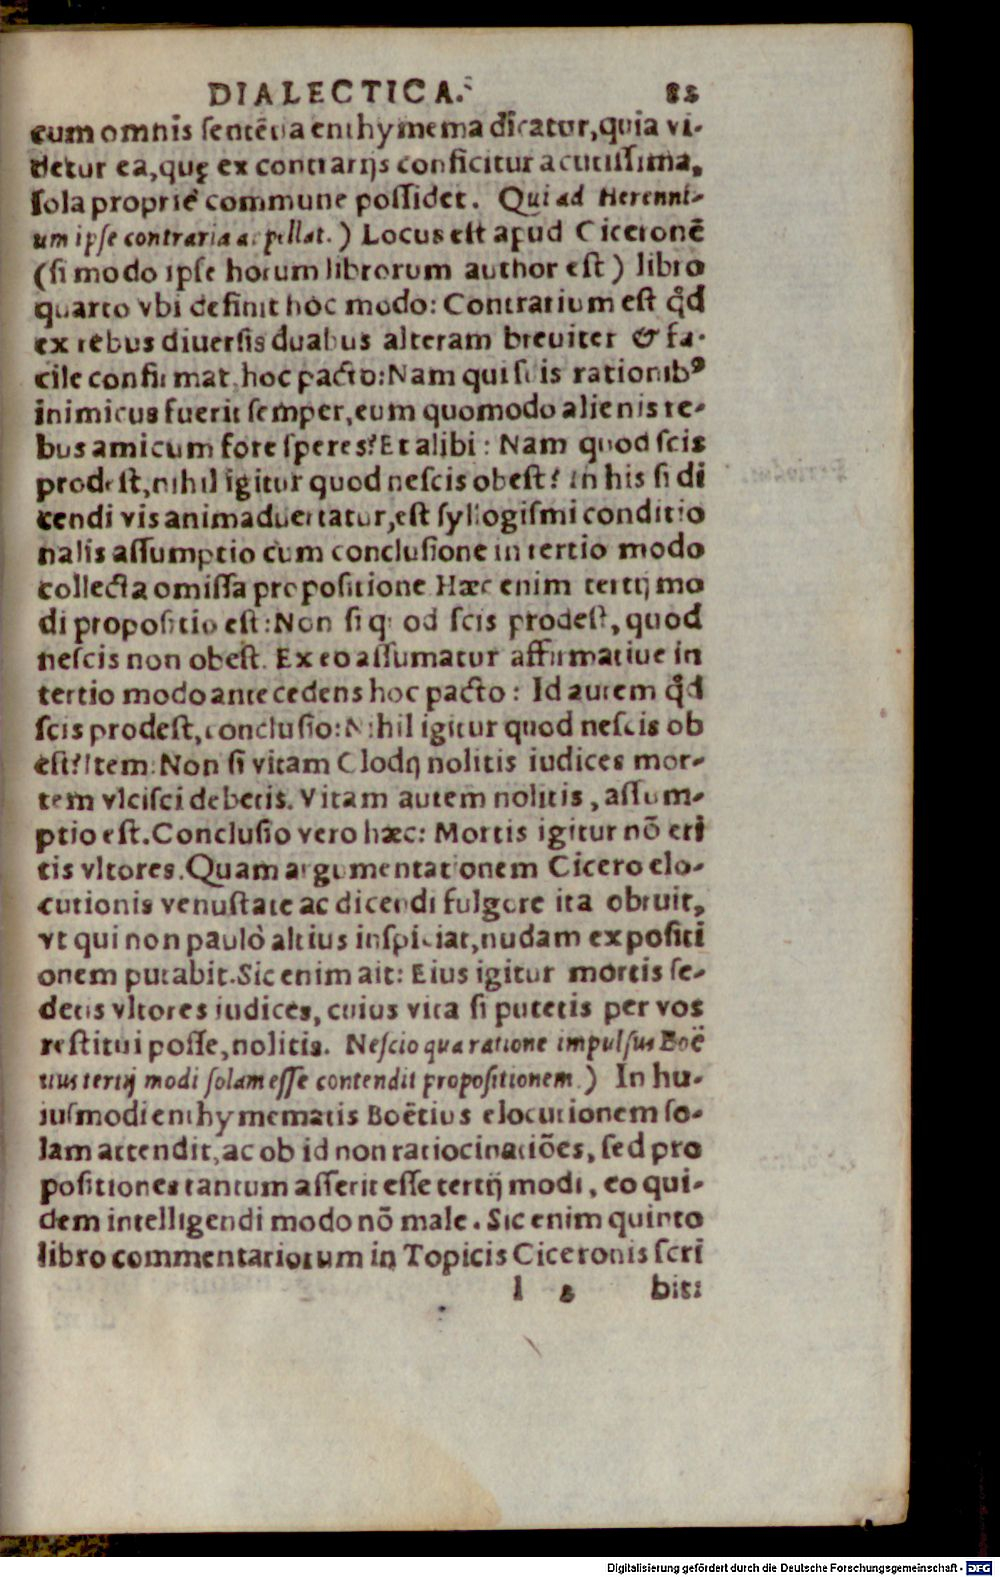 DIALECTICA. 85
cum omnis sentẽtia enthymema dicatur, quia vi-
detur ea, quę ex contrarijs conficitur acutissima,
sola propriè commune possidet. Qui ad Herenni-
um ipse contraria appellat. ) Locus est apud Ciceronẽ
(si modo ipse horum librorum author est) libro
quarto vbi definit hoc modo: Contrarium est qd̃
ex rebus diuersis duabus alteram breuiter & fa-
cile confirmat, hoc pacto: Nam qui suis rationibꝰ
inimicus fuerit semper, eum quomodo alienis re-
bus amicum fore speres? Et alibi: Nam quod scis
prodest, nihil igitur quod nescis obest? in his si di
cendi vis animaduertatur, est syllogismi conditio
nalis assumptio cum conclusione in tertio modo
collecta omissa propositione Hæc enim tertij mo
di propositio est: Non si quod scis prodest, quod
nescis non obest. Ex eo assumatur affirmatiue in
tertio modo antecedens hoc pacto: Id autem qd̃
scis prodest, conclusio: Nihil igitur quod nescis ob
est? Item: Non si vitam Clodij nolitis iudices mor-
tem vlcisci debetis. Vitam autem nolitis, assum-
ptio est. Conclusio vero hæc: Mortis igitur nõ eri
tis vltores. Quam argumentationem Cicero elo-
cutionis venustate ac dicendi fulgore ita obruit,
vt qui non paulò altius inspiciat, nudam expositi
onem putabit. Sic enim ait: Eius igitur mortis se-
detis vltores iudices, cuius vita si putetis per vos
restitui posse, nolitis. Nescio qua ratione impulsus Boë
tius tertij modi solam esse contendit propositionem ) In hu-
iusmodi enthymematis Boëtius elocutionem so-
lam attendit, ac ob id non ratiocinatiões, sed pro
positiones tantum asserit esse tertij modi, eo qui-
dem intelligendi modo nõ male. Sic enim quinto
libro commentariorum in Topicis Ciceronis scri
l 5 bit:
Digitalisierung gefördert durch die Deutsche Forschungsgemeinschaft - DFG